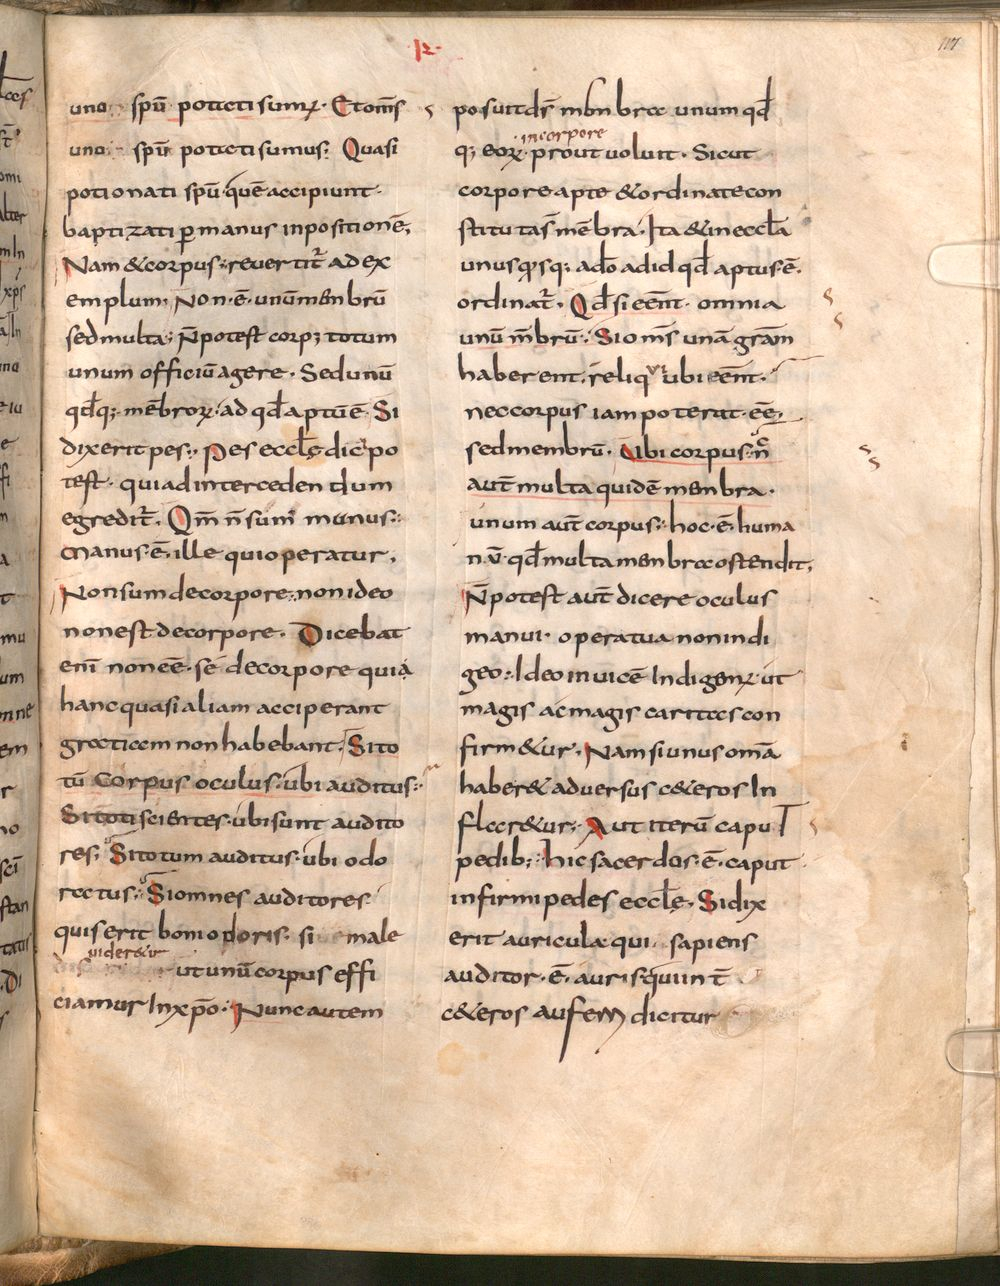 ·12·
117
uno spū potati sumꝰ. Et om̄s
uno spū potati sumus; Quasi
potionati spū quē accipiunt
baptizati ꝑ manus inpositionē;
Nam & corpus; revertit̄ ad ex
emplum; Non ·ē· unū membrū
sed multa; N̄ potest corpꝰ totum
unum officiū agere. Sed unū
qd̄q; mēbroꝝ· ad qd̄ aptū ē. Si
dixerit pes; Pes eccl̄ę dici po
test· qui ad intercedendum
egredit̄. Qm̄ n̄ sum manus;
Manus ·ē· ille qui operatur,
Non sum de corpore; non ideo
non est de corpore. Dicebat
enī non eē· sē de corpore quia
hanc quasi aliam acciperant
gratiam non habebant. Si to
tū corpus oculus· ubi auditus;
Si toti scientes· ubi sunt audito
res; Si totum auditus· ubi odo
ratus; Si omnes auditores
quis erit boni odoris· si male
uideretur
ut unū corpus effi
ciamur In xp̄o. Nunc autem
posuit ds̄ membra unum qd̄
incorpore
q; eoꝝ· prout uoluit. Sicut
corpore apte & ordinate con
stituta s̄ mēbra. Ita & in eccl̄a
unusq̄sq; a dō ad id qd̄ aptus ē.
ordinat̄. Qd̄ si eēnt· omnia
unū m̄brū. Si om̄s unā gr̄am
haberent, reliqui ubi eēnt.
nec corpus iam poterat· eē.
sed membrū. Ubi corpus· n̄
aut̄ multa quidē membra.
unum aut̄ corpus; hoc ·ē· huma
nū qd̄ multa membra ostendit;
N̄ potest aut̄ dicere oculus
manui· opera tua non indi
geo; Ideo invicē Indigemꝰ ut
magis ac magis caritas con
firm&ur. Nam si unus omīa
haber& adversus c&eros In
flar&ur; Aut iterū caput
pedib; hic sacerdos ·ē· caput
infirmi pedes eccl̄ę. Si dix
erit auricula qui sapiens
auditor ·ē· auris qui int̄
c&eros aurem dicitur